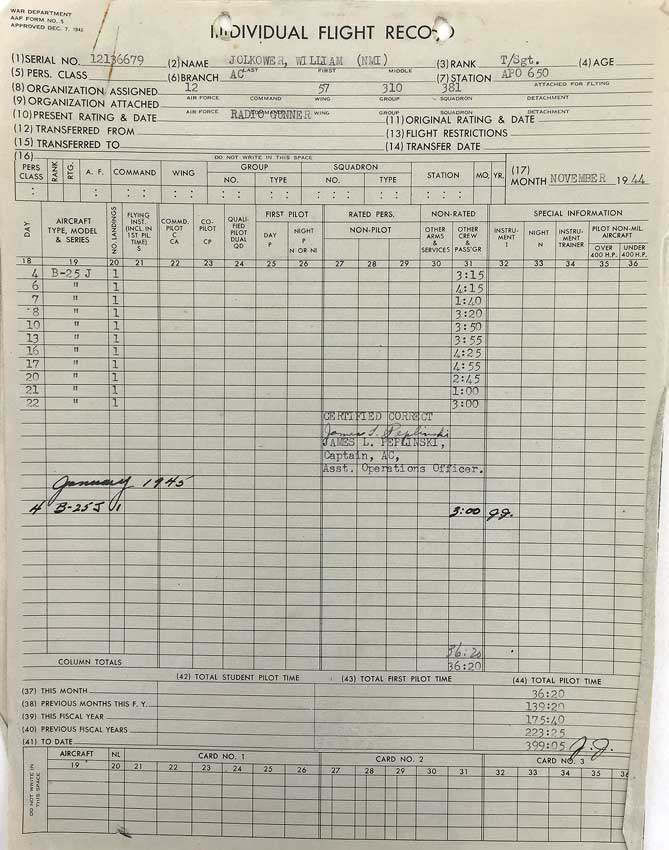 WAR DEPARTMENT
AAF FORM NO. 5
APPROVED DEC. 7, 1942
INDIVIDUAL FLIGHT RECORD
(1) SERIAL NO. 12136679 (2) NAME JOLKOWER, WILLIAM (NMI) (3) RANK T/Sgt. (4) AGE
LAST FIRST MIDDLE
(5) PERS. CLASS (6) BRANCH AC (7) STATION APO 650
(8) ORGANIZATION ASSIGNED 12 57 310 381 ATTACHED FOR FLYING
AIR FORCE COMMAND WING GROUP SQUADRON DETACHMENT
(9) ORGANIZATION ATTACHED
AIR FORCE COMMAND WING GROUP SQUADRON DETACHMENT
(10) PRESENT RATING & DATE RADIO GUNNER (11) ORIGINAL RATING & DATE
(12) TRANSFERRED FROM (13) FLIGHT RESTRICTIONS
(15) TRANSFERRED TO (14) TRANSFER DATE
(16) DO NOT WRITE IN THIS SPACE
PERS CLASS RANK RTG. A. F. COMMAND WING GROUP NO. TYPE SQUADRON NO. TYPE STATION MO. YR. (17) MONTH NOVEMBER 1944
DAY AIRCRAFT TYPE, MODEL & SERIES NO. LANDINGS FLYING INST. (INCL. IN 1ST PIL. TIME) S COMMD. PILOT C CA CO-PILOT CP QUALI-FIED PILOT DUAL QD FIRST PILOT DAY P NIGHT P N OR NI RATED PERS. NON-PILOT NON-RATED OTHER ARMS & SERVICES OTHER CREW & PASS'GR SPECIAL INFORMATION INSTRU-MENT I NIGHT N INSTRU-MENT TRAINER PILOT NON-MIL. AIRCRAFT OVER 400 H.P. UNDER 400 H.P.
18 19 20 21 22 23 24 25 26 27 28 29 30 31 32 33 34 35 36
4 B-25 J 1 3:15
6 " 1 4:15
7 " 1 1:40
8 " 1 3:20
10 " 1 3:50
13 " 1 3:55
16 " 1 4:25
17 " 1 4:55
20 " 1 2:45
21 " 1 1:00
22 " 1 3:00
CERTIFIED CORRECT
James L Peplinski
JAMES L. PEPLINSKI,
Captain, AC,
Asst. Operations Officer.
January 1945
4 B-25 J 1 3:00 J.J.
36:20
COLUMN TOTALS 36:20
(42) TOTAL STUDENT PILOT TIME (43) TOTAL FIRST PILOT TIME (44) TOTAL PILOT TIME
(37) THIS MONTH 36:20
(38) PREVIOUS MONTHS THIS F. Y. 139:20
(39) THIS FISCAL YEAR 175:40
(40) PREVIOUS FISCAL YEARS 223:25
(41) TO DATE 399:05 J.J.
DO NOT WRITE IN THIS SPACE AIRCRAFT NL CARD NO. 1 CARD NO. 2 CARD NO. 3
19 20 21 22 23 24 25 26 27 28 29 30 31 32 33 34 35 36